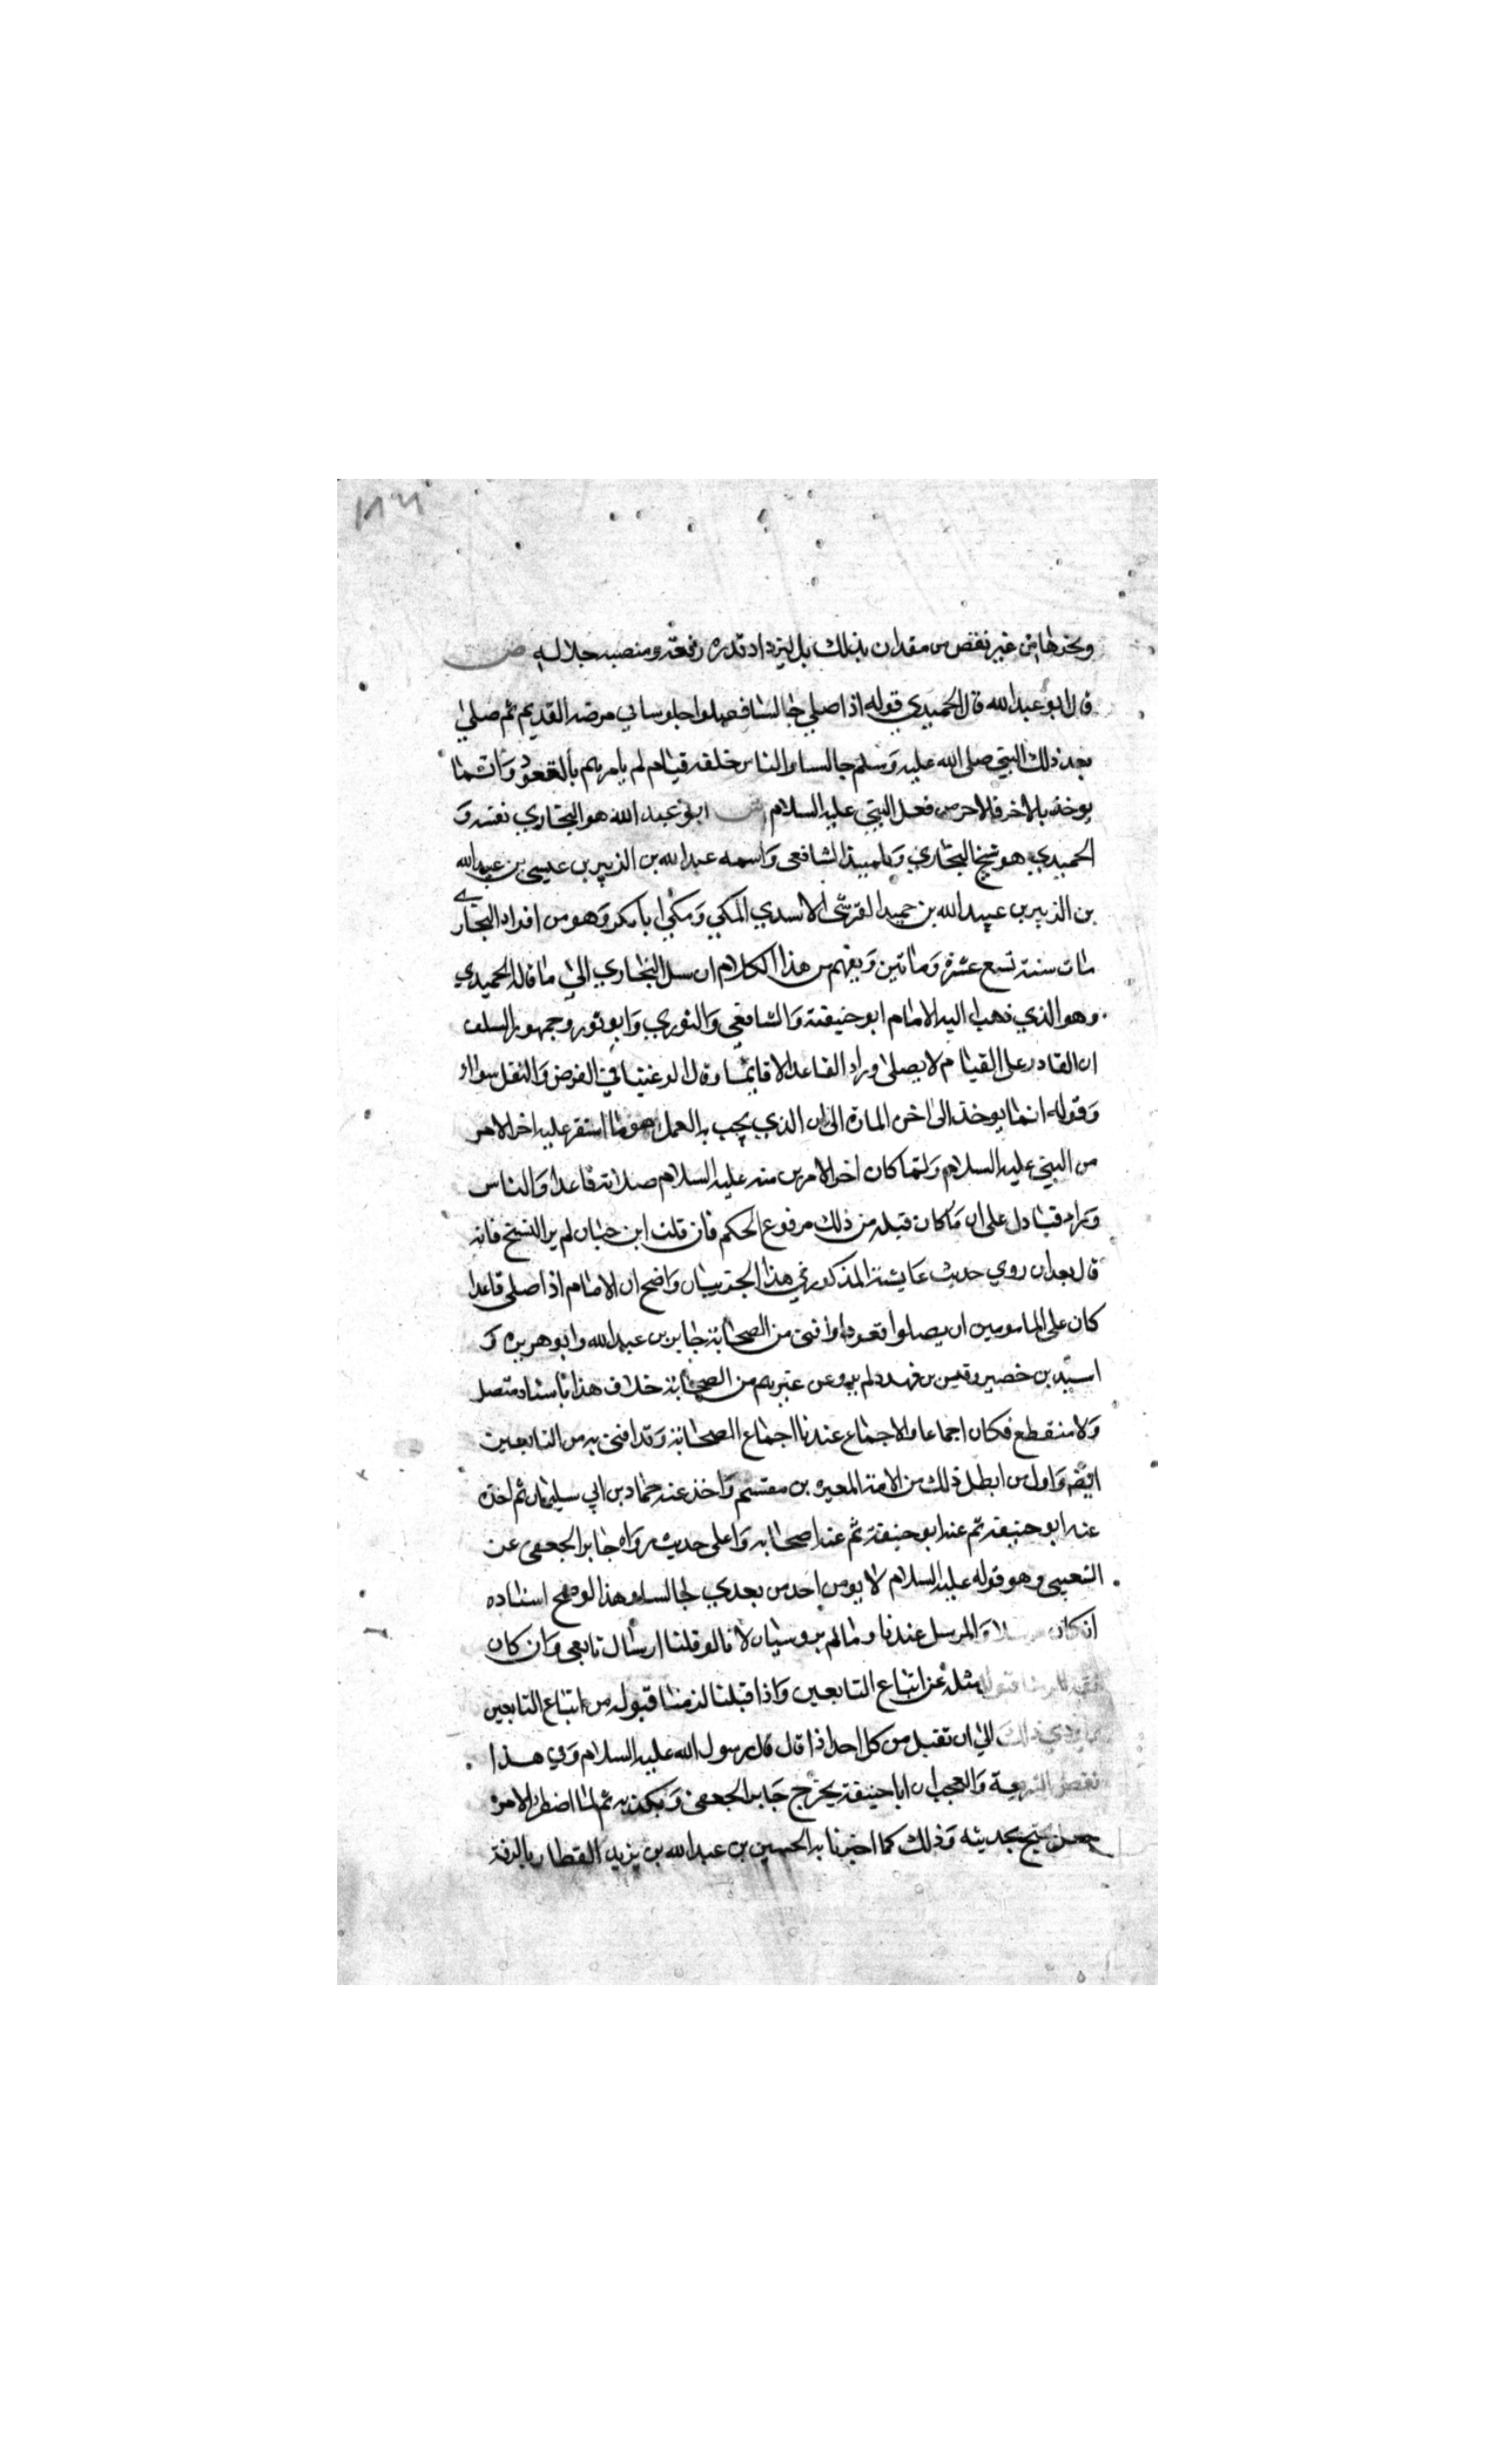 ونحوها من غير نقص من مقداره بذلك بل ليزداد قدره رفعة ومنصبه جلالة ص
قال ابو عبد الله قال الحميدي قوله اذا صلى جالسا فصلوا جلوسا في مرضه القديم ثم صلى
بعد ذلك النبي صلى الله عليه وسلم جالسا والناس خلفه قيام لم يامرهم بالقعود وانما
يوخذ بالاخر فالاخر من فعل النبي عليه السلام ش ابو عبد الله هو البخاري نفسه و
الحميدي هو شيخ البخاري وتلميذ الشافعي واسمه عبد الله بن الزبير بن عيسى بن عبد الله
بن الزبير بن عبيد الله بن حميد القرشي الاسدي المكي ومكي ابا بكر وهو من افراد البخاري
مات سنة تسع عشرة وماتين ويفهم من هذا الكلام ان سل البخاري الى ما قاله الحميدي
وهو الذي ذهب اليه الامام ابو حنيفة والشافعي والثوري وابو ثور وجمهور السلف
ان القادر على القيام لا يصلى وراء القاعد الا قايما وقال المرغيناني الفرض والنفل سواء
وقوله انما يوخذ الى اخره اشارة الى ان الذي يجب به العمل هو ما استقر عليه اخر الامر
من النبي عليه السلام ولما كان اخر الامرين منه عليه السلام صلاته قاعدا والناس
وراه قيام دل على ان ما كان قبله من ذلك مرفوع الحكم فان قلت ابن حبان لم ير النسخ فانه
قال بعد ان روي حديث عايشة المذكور في هذا الخبر بيان واضح ان الامام اذا صلى قاعدا
كان على المامومين ان يصلوا قعودا وافتى من الصحابة جابر بن عبد الله وابو هريرة و
اسيد بن خضير وقيس بن فهد ولم يرو عن غيرهم من الصحابة خلاف هذا باسناد متصل
ولا منقطع فكان اجماعا والاجماع عندنا اجماع الصحابة وقد افتى به من التابعين
ايضا واول من ابطل ذلك من الامة المغيرة بن مقسم واخذ عنه حماد بن ابي سليمان ثم اخذه
عنه ابو حنيفة ثم عنه ابو حنيفة ثم عنه اصحابه واعلى حديث رواه جابر الجعفى عن
الشعبي وهو قوله عليه السلام لا يومن احد من بعدي جالسا وهذا لو صح اسناده
لكان مرسلا والمرسل عندنا وما لم يرو سيان لانا لو قلنا ارسال تابعي وان كان
ثقة للزمنا قبول مثله عن اتباع التابعين واذا قبلنا لزمنا قبوله من اتباع التابعين
ويودي ذلك الى ان تقبل من كل احد اذا قال قال رسول الله عليه السلام وفي هذا
نقض الشريعة والعجب ان ابا حنيفة يجرح جابر الجعفى ويكذبه ثم لما اضطره الامر
جعل يحتج بحديثه وذلك كما اخبرنا به الحسين بن عبد الله بن يزيد القطار بالرقة